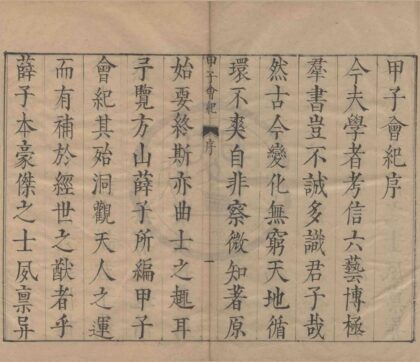 甲子會紀序
今夫學者考信六藝博極
羣書豈不誠多識君子哉
然古今變化無窮天地循
環不爽自非察微知著原
甲子會紀
序
一
始要終斯亦曲士之趣耳
予覽方山薛子所編甲子
會紀其殆洞觀天人之運
而有補於經世之猷者乎
薛子本豪傑之士夙禀异